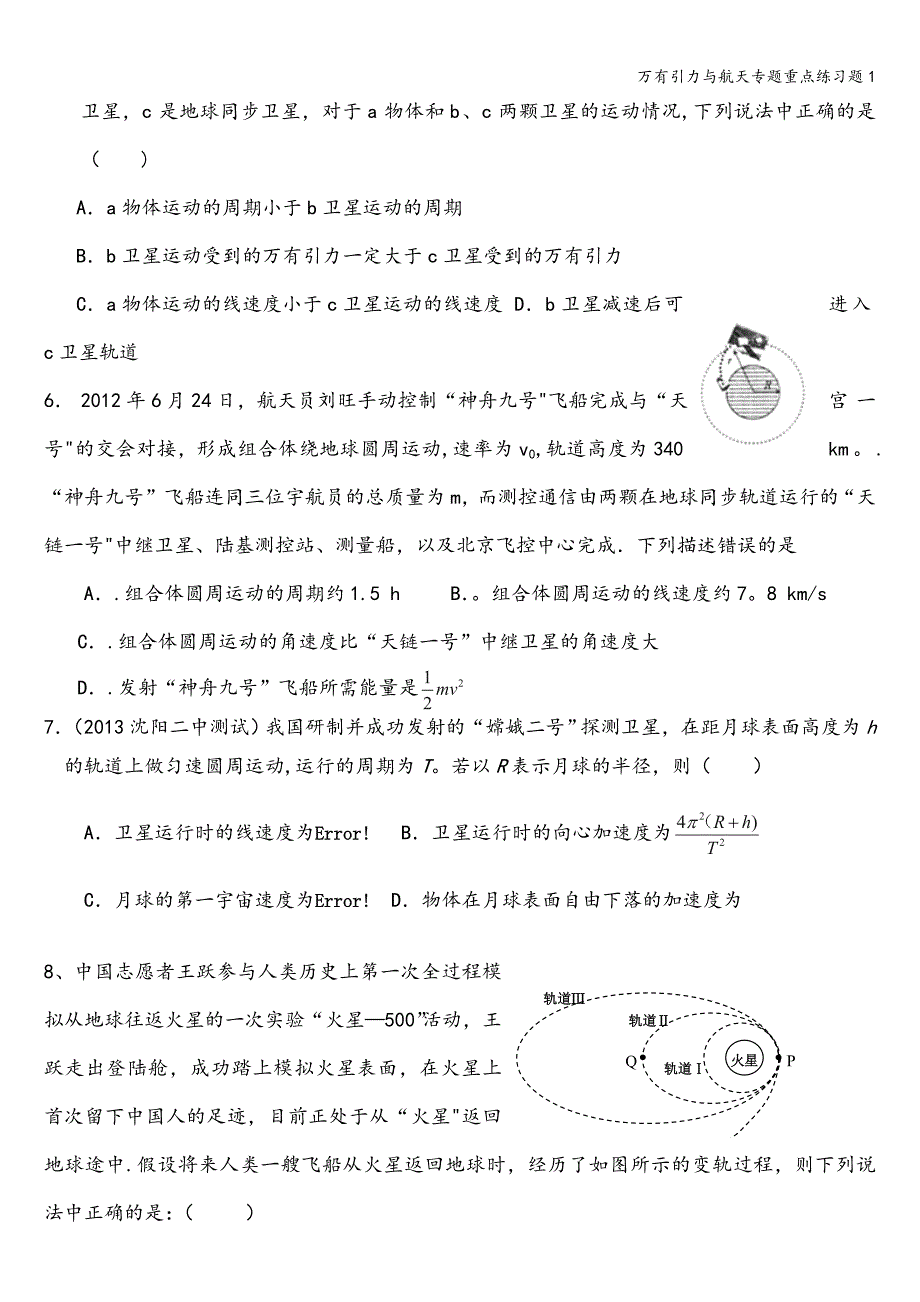 万有引力与航天专题重点练习题1
卫星，c是地球同步卫星，对于a物体和b、c两颗卫星的运动情况,下列说法中正确的是
（　　）
A．a物体运动的周期小于b卫星运动的周期
B．b卫星运动受到的万有引力一定大于c卫星受到的万有引力
C．a物体运动的线速度小于c卫星运动的线速度 D．b卫星减速后可 进入
c卫星轨道
6． 2012年6月24日，航天员刘旺手动控制“神舟九号"飞船完成与“天 宫一
号"的交会对接，形成组合体绕地球圆周运动,速率为v₀,轨道高度为340 km。.
“神舟九号”飞船连同三位宇航员的总质量为m，而测控通信由两颗在地球同步轨道运行的“天
链一号"中继卫星、陆基测控站、测量船，以及北京飞控中心完成．下列描述错误的是
A．.组合体圆周运动的周期约1.5 h B.。组合体圆周运动的线速度约7。8 km/s
C．.组合体圆周运动的角速度比“天链一号”中继卫星的角速度大
D．.发射“神舟九号”飞船所需能量是$\frac{1}{2}mv^2$
7．（2013沈阳二中测试）我国研制并成功发射的“嫦娥二号”探测卫星，在距月球表面高度为h
的轨道上做匀速圆周运动,运行的周期为T。若以R表示月球的半径，则（　　）
A．卫星运行时的线速度为Error! B．卫星运行时的向心加速度为$\frac{4\pi^2(R+h)}{T^2}$
C．月球的第一宇宙速度为Error! D．物体在月球表面自由下落的加速度为
8、中国志愿者王跃参与人类历史上第一次全过程模
拟从地球往返火星的一次实验“火星—500”活动，王
跃走出登陆舱，成功踏上模拟火星表面，在火星上
首次留下中国人的足迹，目前正处于从“火星"返回
地球途中.假设将来人类一艘飞船从火星返回地球时，经历了如图所示的变轨过程，则下列说
法中正确的是:（　　）
r
R
轨道Ⅲ
轨道Ⅱ
轨道Ⅰ
Q
火星
P